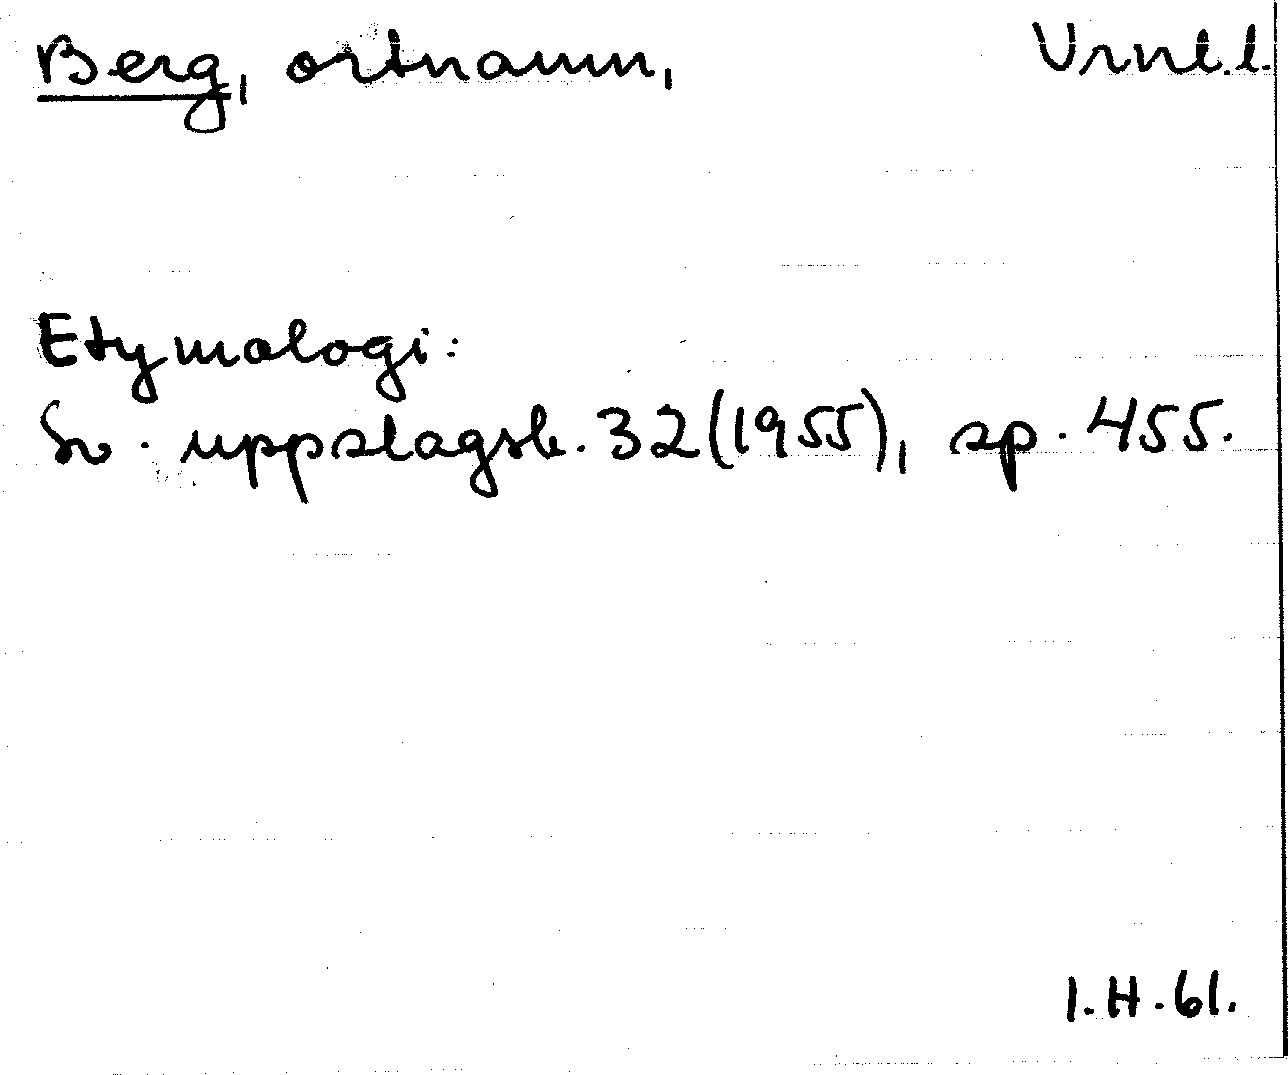 Berg, ortnamn, Vrml.l.
Etymologi:
Sv. uppslagsb. 32 (1955), sp. 455.
I.H.61.